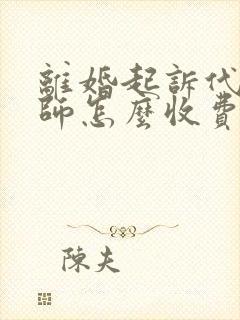 離婚起訴代
師怎麼收費
陳夫